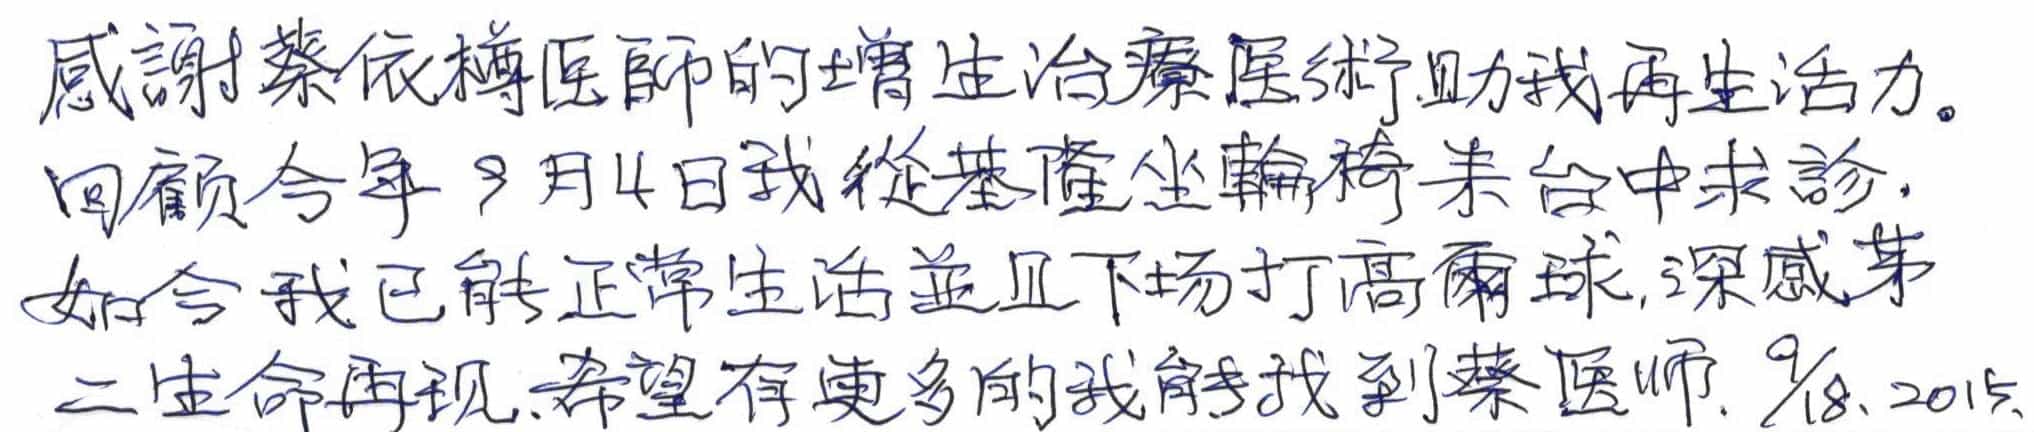 感謝蔡依樽医師的增生治療医術助我再生活力。
回顧今年9月4日我從基隆坐輪椅来台中求診,
如今我已能正常生活並且下场打高爾球,深感苐
二生命再现.希望有更多的我能找到蔡医师. 9/18. 2015.